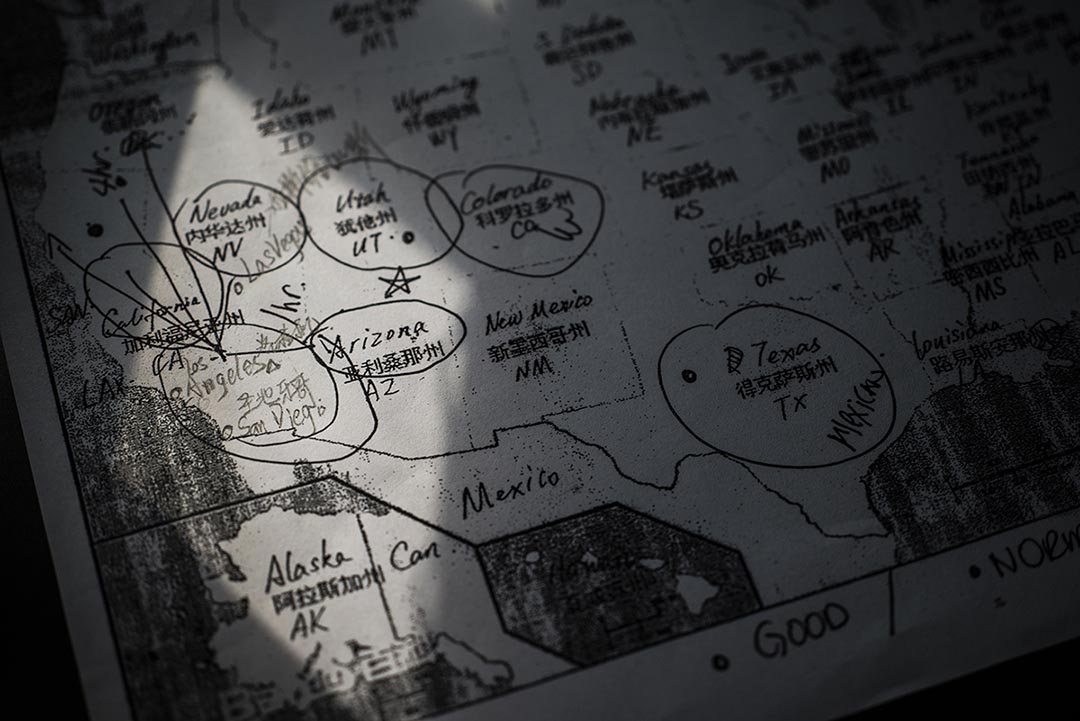 Washington
Montana
MT
S. Dakota
SD
Oregon
Idaho
爱达荷州
ID
Wyoming
怀俄明州
WY
Nebraska
内布拉斯加州
NE
Iowa
IA
IL
Indiana
IN
Kentucky
Missouri
密苏里州
MO
Kansas
堪萨斯州
KS
TN
Alabama
AL
Nevada
内华达州
NV
Las Vegas
Utah
犹他州
UT
Colorado
科罗拉多州
CO
Oklahoma
奥克拉荷马州
OK
Arkansas
阿肯色州
AR
Mississippi
密西西比州
MS
1hr.
SAN
California
加利福尼亚州
CA
Los
Angeles
LAX
圣地牙哥
San Diego
Arizona
亚利桑那州
AZ
New Mexico
新墨西哥州
NM
Texas
得克萨斯州
TX
Mexican
Louisiana
路易斯安那州
LA
Mexico
Alaska
阿拉斯加州
AK
Can
Hawaii
GOOD
NORM